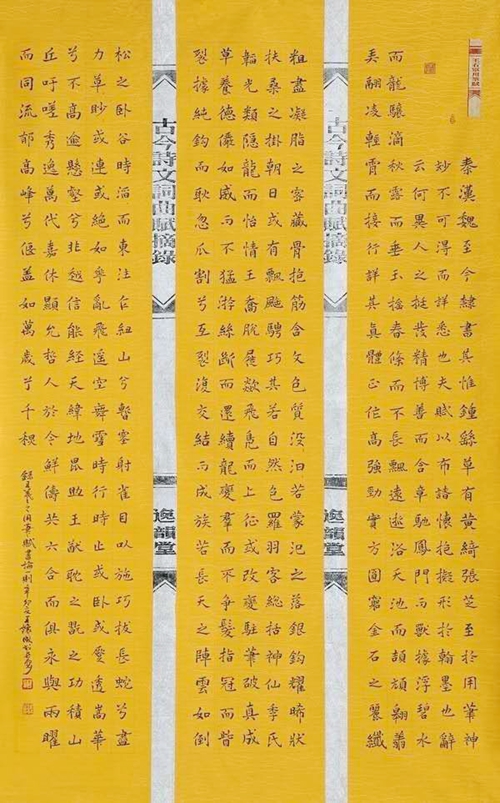 王右軍用筆賦
秦漢魏至今隸書其惟鍾繇草有黃綺張芝至於用筆神
妙不可得而詳悉也夫賦以布諸懷抱擬形於翰墨也辭
云何異人之挺發精博善而含章馳鳳門而獸據浮碧水
而龍驤滴秋露而垂玉搖春條而不長飄遠逝浴天池而頡頏翱翥
弄翮凌輕霄而接行詳其真體正作高強勁實方圓窮金石之麗纖
古今詩文詞曲賦摘錄
逸韻堂
粗盡凝脂之密藏骨抱筋含文包質沒汩若蒙汜之落銀鉤耀晞狀
扶桑之掛朝日或有飄颻騁巧其若自然包羅羽客總括神仙季氏
韜光類隱龍而怡情王喬脫屣歘飛鳧而上征或改變駐筆破真成
草養德儼如威而不猛游絲斷而還續龍鸞群而不爭髮指冠而眥
裂據純鉤而耿忽瓜割兮互裂復交結而成族若長天之陣雲如倒
古今詩文詞曲賦摘錄
逸韻堂
松之臥谷時滔而東注乍紐山兮暫塞射雀目以施巧拔長蛇兮盡
力草眇或連或絕如花亂飛遙空舞雪時行時止或臥或蹷透嵩華
兮不高逾懸壑兮非越信能經天緯地毗助王猷耽之翫之功積山
丘吁嗟秀逸萬代嘉休顯允哲人於今鮮儔共六合而俱永與兩曜
而同流郁高峰兮偃蓋如萬歲兮千秋
錄王羲之用筆賦書論